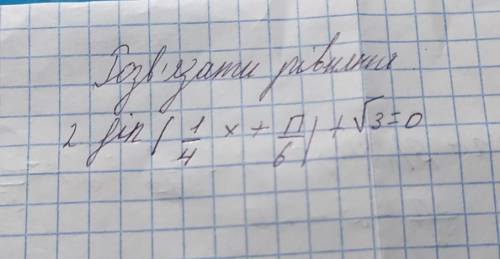 Розв'язати рівняння
2 sin(1/4 x + П/6) + √3 = 0